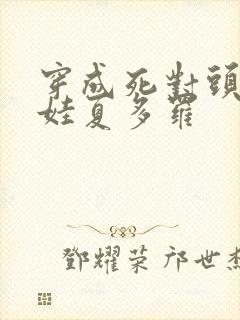 穿成死對頭
娃夏多羅
鄧耀荣 邝世杰